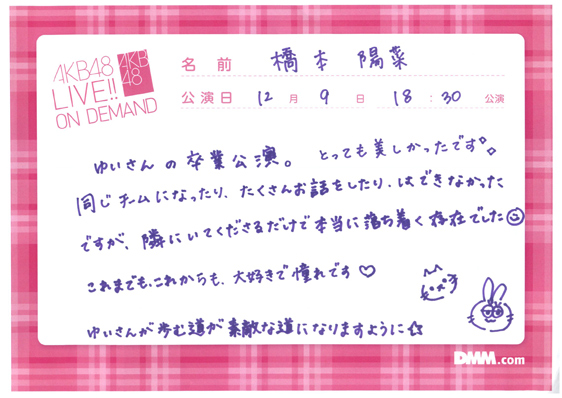 AKB48
LIVE!!
ON DEMAND
AKB
48
名前 橋本 陽菜
公演日 12月 9日 18:30 公演
ゆいさんの卒業公演。とっても美しかったです
同じチームになったり、たくさんお話をしたり、はできなかった
ですが、隣にいてくださるだけで本当に落ち着く存在でした
これまでも、これからも、大好きで憧れです♡
ゆいさんが歩む道が素敵な道になりますように☆
DMM.com